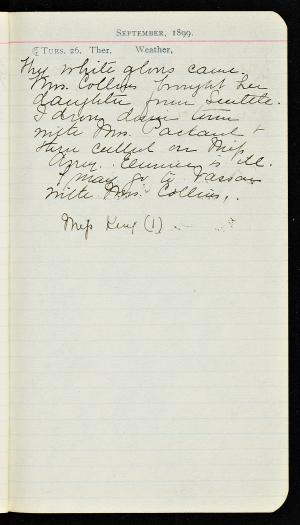 September, 1899.
¶ Tues. 26. Ther. Weather,
My white gloves came.
Mrs. Collins brought her
daughter from Seattle.
I drove down town
with Mrs. &
then called on Miss
is ill.
I may go to Vassar
with Mrs. Collins.
Miss King (1)